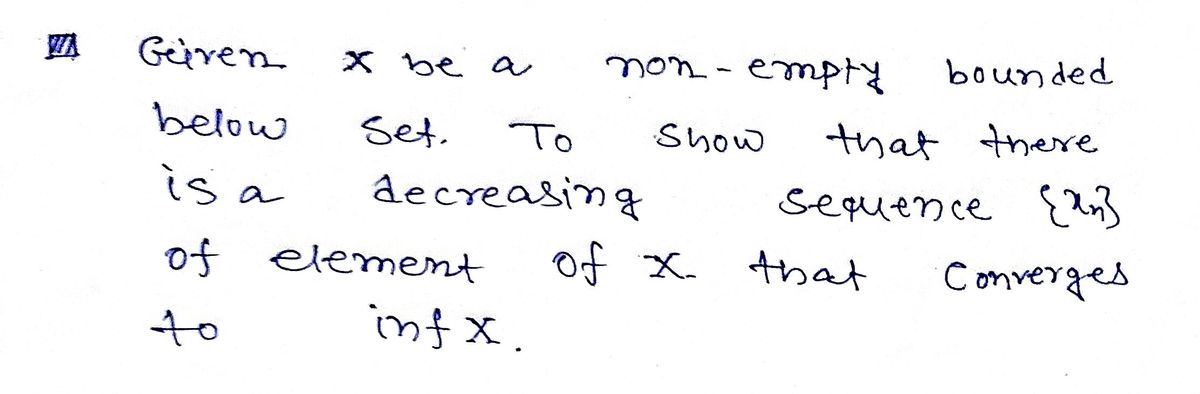 Given X be a non-empty bounded
below set. To show that there
is a decreasing sequence {xn}
of element of X. that converges
to inf X.